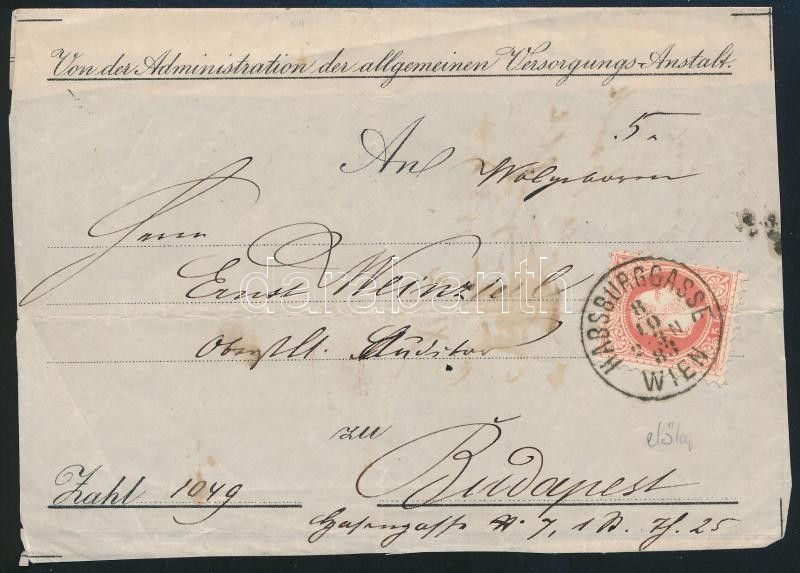 Von der Administration der allgemeinen Versorgungs-Anstalt.
5
An
Herrn
Ernst
darabanth
Oberstlt. Auditor
HABSBURGGASSE
8
10
WIEN
zu
előlap
Budapest
Zahl 1049
7, 1 St. Th. 25